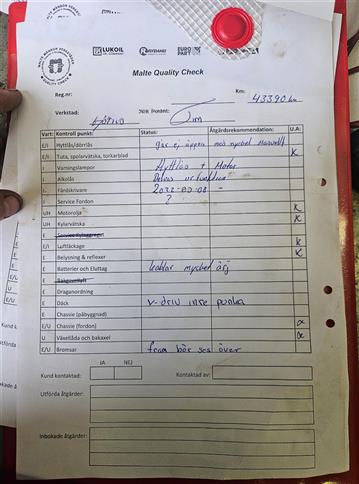 MALTE MÅNSON VERKSTÄDER
QUALITY CHECK
LUKOIL
EURO PART
Malte Quality Check
Reg.nr:
Km: 43390 km
Verkstad:
Tim
Vart: Kontroll punkt: Status: Åtgärdsrekommendation: U.A:
E/I Hyttlås/dörrlås går ej öppna med nyckel
E/I Tuta, spolarvätska, torkarblad K
I Varningslampor Hyttlås + Motor
I Alkolås
I Färdskrivare
I Service Fordon ?
UH Motorolja K
UH Kylarvätska K
E Service Kylaggregat
E/I Luftläckage K
E Belysning & reflexer K
E Batterier och Eluttag kablar mycket ärj
E Bakgavellyft
E Draganordning
E Däck v-driv inre punka
E Chassie (påbyggnad)
E/U Chassie (fordon) α
U Växellåda och bakaxel α
E/U Bromsar fram bör ses över
JA NEJ
Kund kontaktad: Kontaktad av:
Utförda åtgärder:
Inbokade åtgärder: